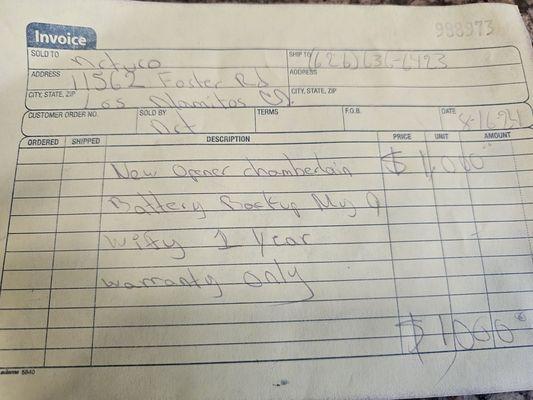 Invoice
998973
SOLD TO
SHIP TO (626) 636-6423
ADDRESS 11562 Foster Rd
ADDRESS
CITY, STATE, ZIP Los Alamitos
CITY, STATE, ZIP
CUSTOMER ORDER NO.
SOLD BY
TERMS
F.O.B.
DATE
ORDERED SHIPPED DESCRIPTION PRICE UNIT AMOUNT
New Opener chamberlain $1,000
Battery Backup My Q
wify 1 Year
warranty only
$1,000
adams 5840